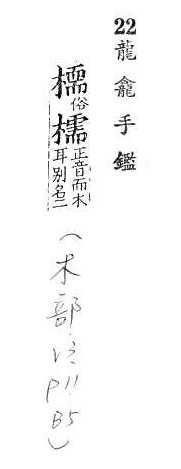 22 龍龕手鑑
俗檽正音而木
耳別名二
(木部 P11 B5)